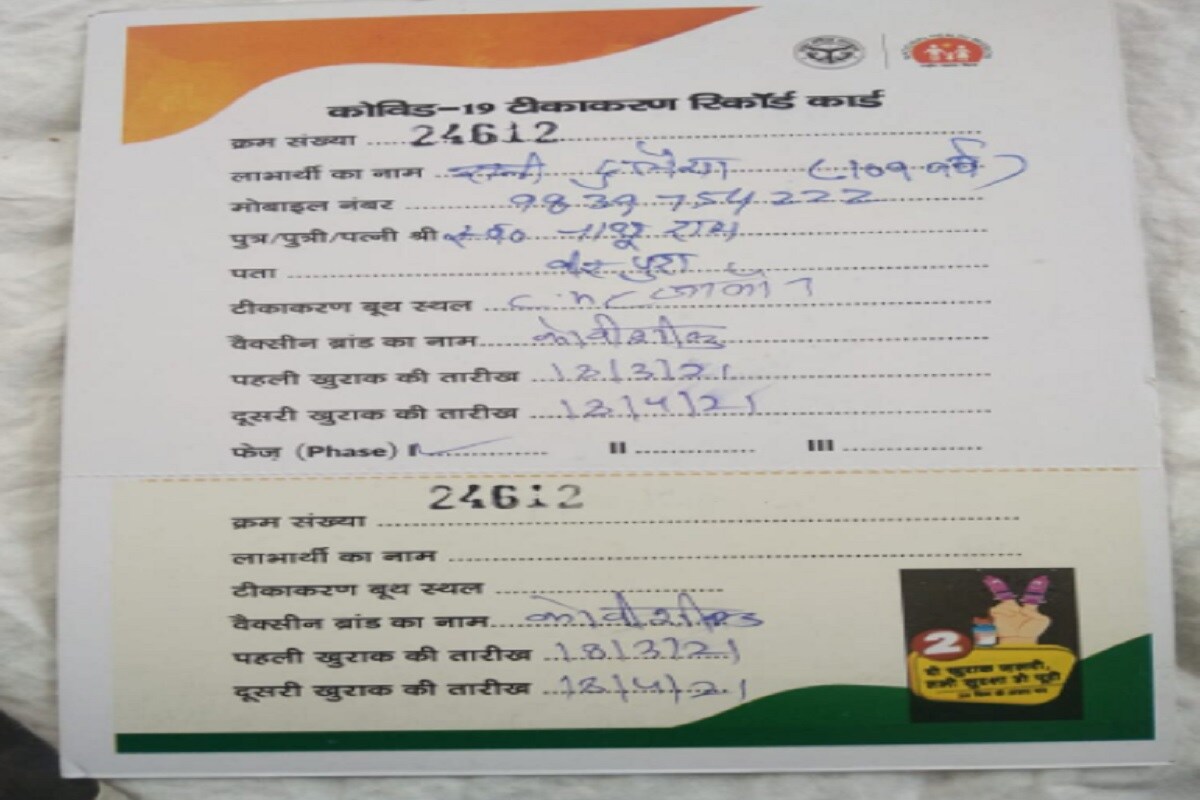 कोविड-19 टीकाकरण रिकॉर्ड कार्ड
क्रम संख्या 24612
लाभार्थी का नाम रानी दुलैया (109 वर्ष)
मोबाइल नंबर 9839754222
पुत्र/पुत्री/पत्नी श्री स्व० नाथू राम
पता वीर पुरा
टीकाकरण बूथ स्थल
वैक्सीन ब्रांड का नाम कोवीशील्ड
पहली खुराक की तारीख 18/3/21
दूसरी खुराक की तारीख 18/4/21
फेज़ (Phase) I II III
24612
क्रम संख्या
लाभार्थी का नाम
टीकाकरण बूथ स्थल
वैक्सीन ब्रांड का नाम कोवीशील्ड
पहली खुराक की तारीख 18/3/21
दूसरी खुराक की तारीख 18/4/21
2